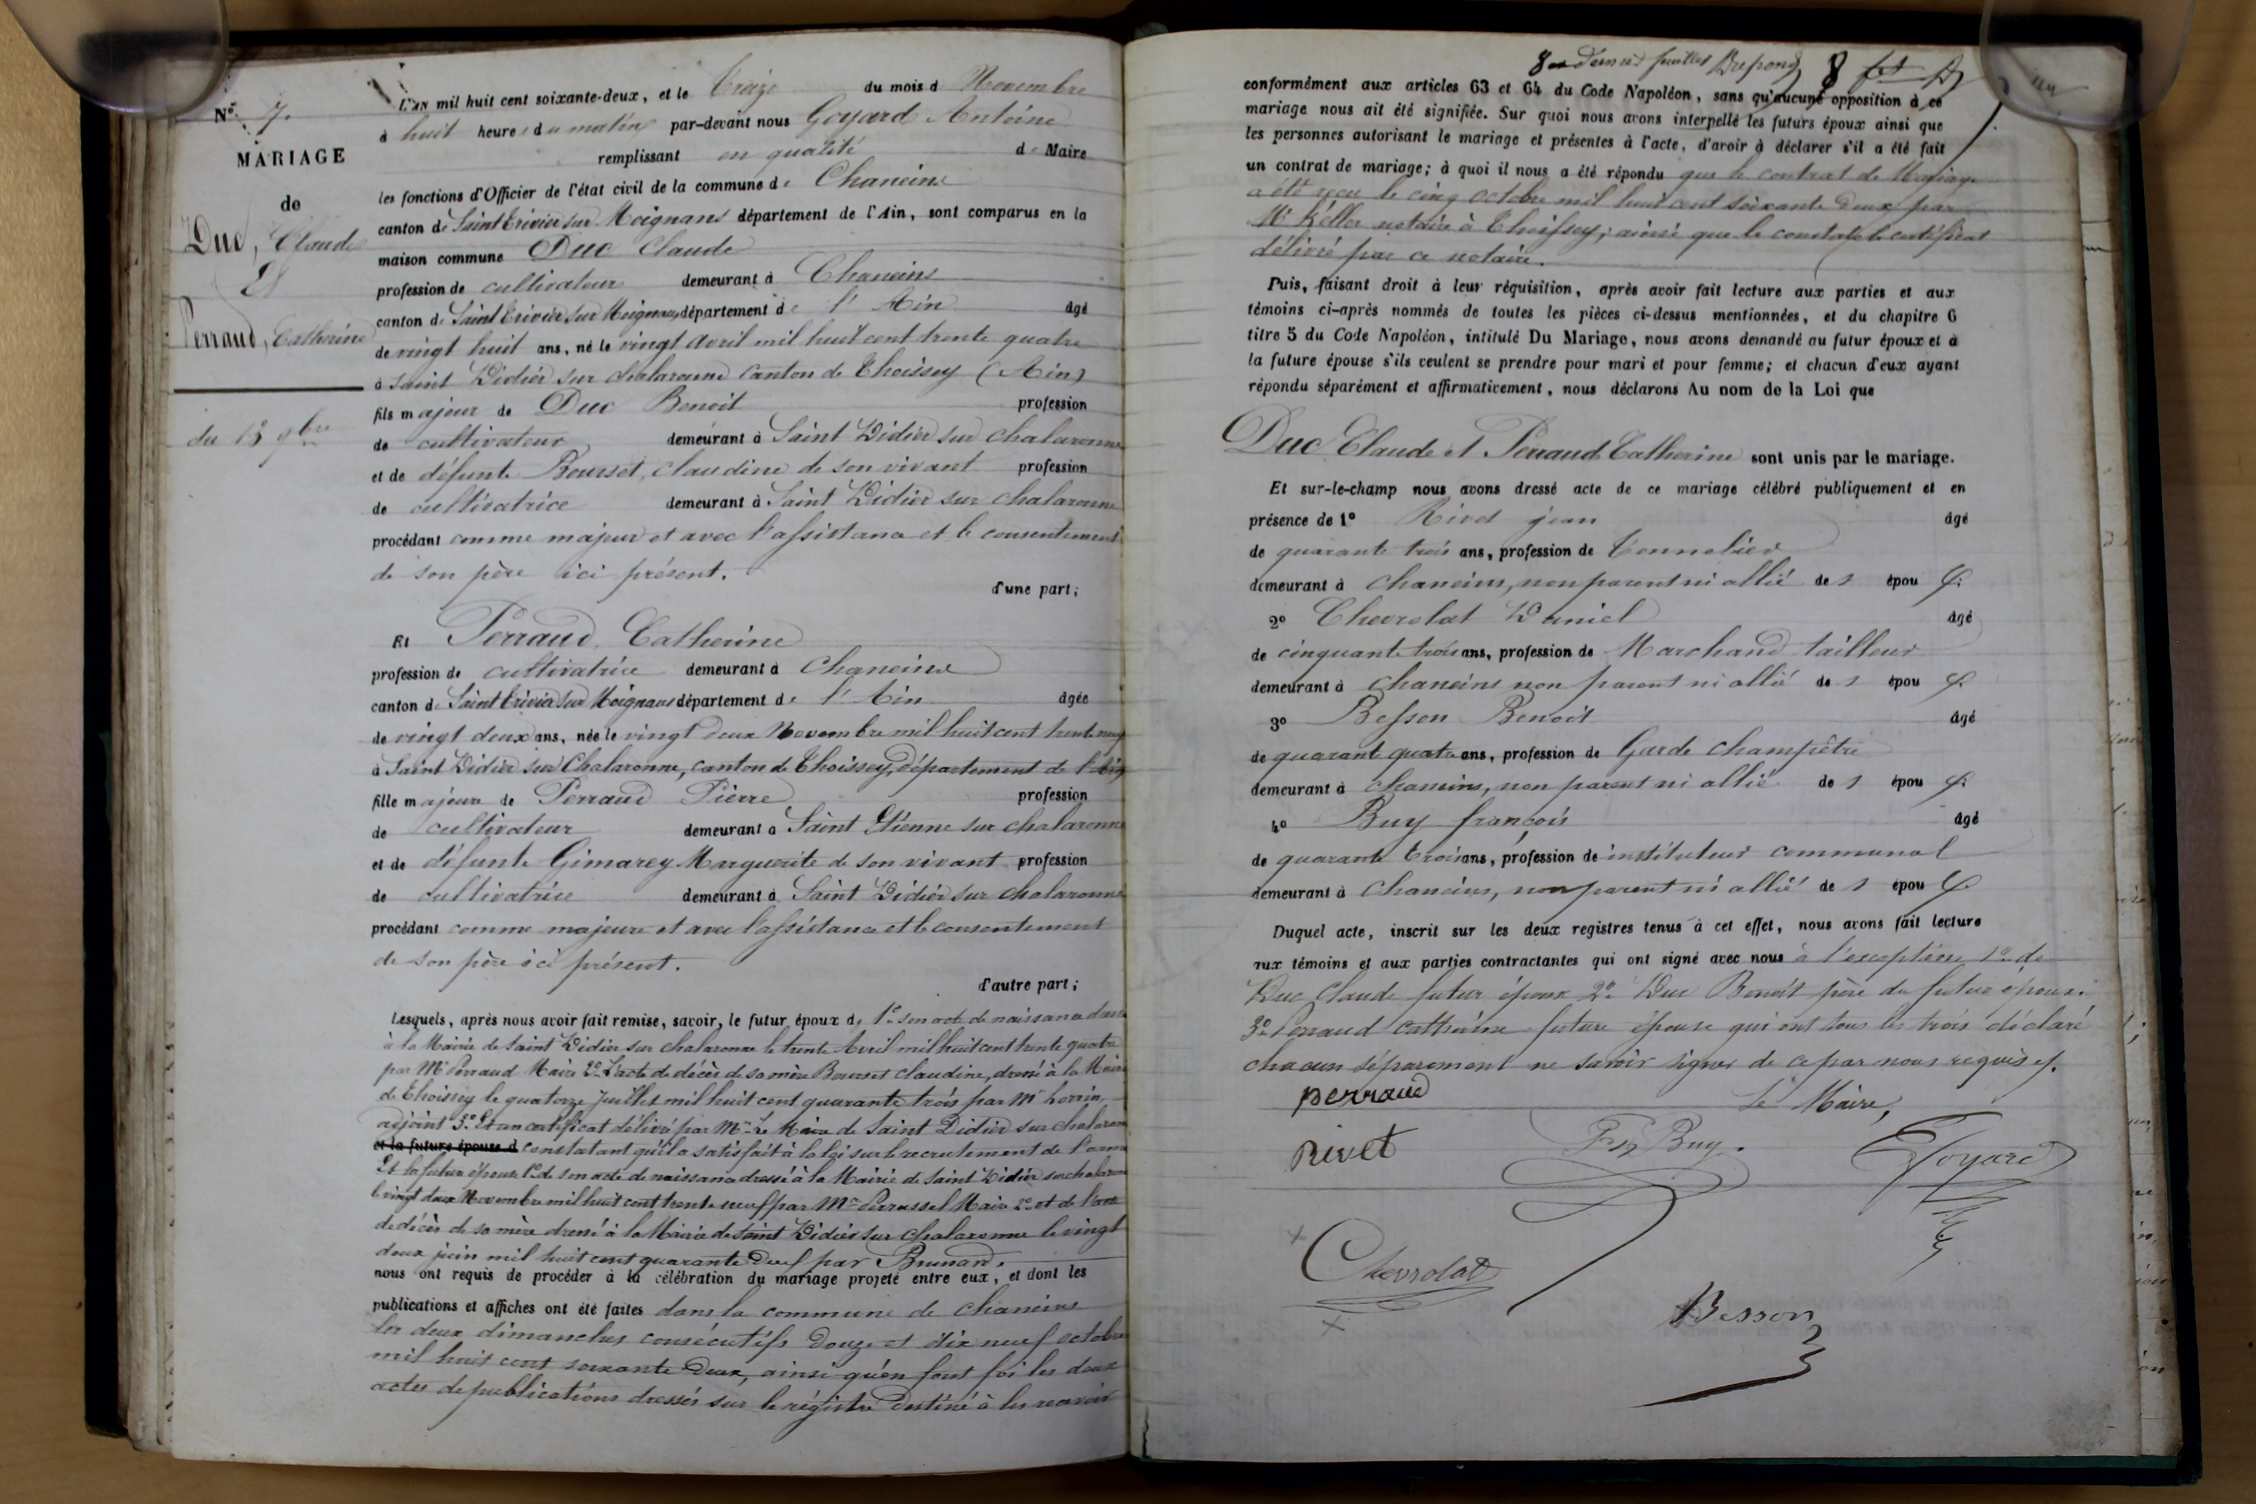 N° 7.
MARIAGE
de
Duc, Claude
Et
Perraud, Catherine
du 13 9bre
L'AN mil huit cent soixante-deux, et le Treize du mois d Novembre
à huit heures du matin par-devant nous Goyard Antoine
remplissant en qualité de Maire
les fonctions d'Officier de l'état civil de la commune de Chaneins
canton de Saint Trivier sur Moignans département de l'Ain, sont comparus en la
maison commune Duc Claude
profession de cultivateur demeurant à Chaneins
canton de Saint Trivier sur Moignans département de l'Ain âgé
de vingt huit ans, né le vingt avril mil huit cent trente quatre
à Saint Didier sur chalaronne canton de Thoissey (Ain)
fils majeur de Duc Benoit profession
de cultivateur demeurant à Saint Didier sur chalaronne
et de défunte Bourset, claudine de son vivant profession
de cultivatrice demeurant à Saint Didier sur chalaronne
procédant comme majeur et avec l'assistance et le consentement
de son père ici présent.
d'une part;
Et Perraud, Catherine
profession de cultivatrice demeurant à Chaneins
canton de Saint Trivier sur Moignans département de l'Ain âgée
de vingt deux ans, née le vingt deux Novembre mil huit cent trente neuf
à Saint Didier sur Chalaronne, canton de Thoissey, département de l'Ain
fille majeure de Perraud Pierre profession
de cultivateur demeurant à Saint Etienne sur chalaronne
et de défunte Gimarey Marguerite de son vivant profession
de cultivatrice demeurant à Saint Didier sur chalaronne
procédant comme majeure et avec l'assistance et le consentement
de son père ici présent.
d'autre part;
Lesquels, après nous avoir fait remise, savoir, le futur époux de 1° son acte de naissance dressé
à la Mairie de Saint Didier sur chalaronne le trente Avril mil huit cent trente quatre
par Mr Perraud Maire 2° L'acte de décès de sa mère Bourset claudine, dressé à la Mairie
de Thoissey le quatorze Juillet mil huit cent quarante trois par Mr Lorrin,
adjoint 3° Et un certificat délivré par Mr Le Maire de Saint Didier sur chalaronne
et la future épouse d constatant qu'il a satisfait à la loi sur le recrutement de l'armée
Et la future épouse 1° de son acte de naissance dressé à la Mairie de Saint Didier sur chalaronne
le vingt deux Novembre mil huit cent trente neuf par Mr Perrussel Maire 2° et de l'acte
de décès de sa mère dressé à la Mairie de Saint Didier sur chalaronne le vingt
deux juin mil huit cent quarante par Brunard.
nous ont requis de procéder à la célébration du mariage projeté entre eux, et dont les
publications et affiches ont été faites dans la commune de Chaneins
les deux dimanches consécutifs Douze et dix neuf octobre
mil huit cent soixante Deux, ainsi qu'en font foi les deux
actes de publications dressés sur le régistre destiné à les recevoir
8 8
conformément aux articles 63 et 64 du Code Napoléon, sans qu'aucune opposition à ce
mariage nous ait été signifiée. Sur quoi nous avons interpellé les futurs époux ainsi que
les personnes autorisant le mariage et présentes à l'acte, d'avoir à déclarer s'il a été fait
un contrat de mariage; à quoi il nous a été répondu que le contrat de Mariage
a été reçu le cinq octobre mil huit cent soixante Deux par
Mr Keller notaire à Thoissey; ainsi que le constate le certificat
délivré par ce notaire.
Puis, faisant droit à leur réquisition, après avoir fait lecture aux parties et aux
témoins ci-après nommés de toutes les pièces ci-dessus mentionnées, et du chapitre 6
titre 5 du Code Napoléon, intitulé Du Mariage, nous avons demandé au futur époux et à
la future épouse s'ils veulent se prendre pour mari et pour femme; et chacun d'eux ayant
répondu séparément et affirmativement, nous déclarons Au nom de la Loi que
Duc Claude et Perraud Catherine sont unis par le mariage.
Et sur-le-champ nous avons dressé acte de ce mariage célébré publiquement et en
présence de 1° Rivet jean âgé
de quarante trois ans, profession de Tonnelier
demeurant à Chaneins, non parent ni allié des épou x.
2° Chevrolat Daniel âgé
de cinquante trois ans, profession de Marchand tailleur
demeurant à Chaneins non parent ni allié des épou x.
3° Besson Benoit âgé
de quarante quatre ans, profession de Garde champêtre
demeurant à Chaneins, non parent ni allié des épou x.
4° Buy françois âgé
de quarante trois ans, profession de instituteur communal
demeurant à Chaneins, non parent ni allié des épou x
Duquel acte, inscrit sur les deux registres tenus à cet effet, nous avons fait lecture
aux témoins et aux parties contractantes qui ont signé avec nous à l'exception 1° de
Duc Claude futur époux 2° Duc Benoit père du futur époux.
3° Perraud catherine future épouse qui ont tous les trois déclaré
chacun séparement ne savoir signer de ce par nous requis.
perraud
Le Maire,
Rivet
Buy.
Goyard
Chevrolat
Besson